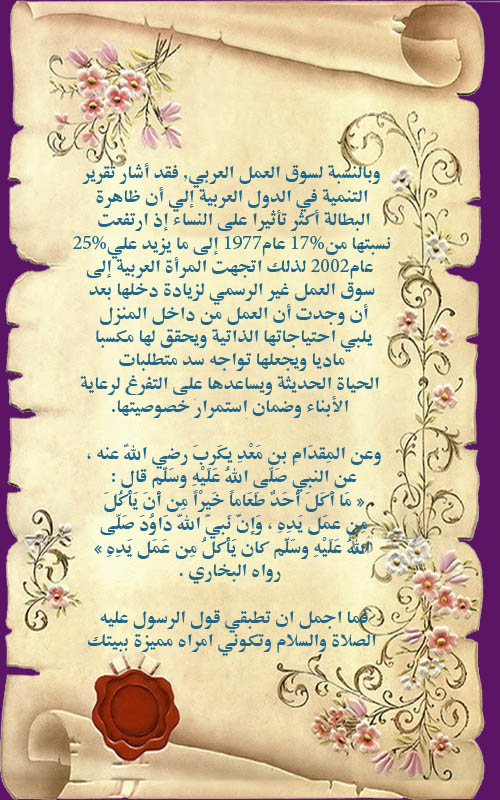 وبالنسبة لسوق العمل العربي, فقد أشار تقرير
التنمية في الدول العربية إلي أن ظاهرة
البطالة أكثر تأثيرا على النساء إذ ارتفعت
نسبتها من17% عام1977 إلى ما يزيد علي25%
عام2002 لذلك اتجهت المرأة العربية إلى
سوق العمل غير الرسمي لزيادة دخلها بعد
أن وجدت أن العمل من داخل المنزل
يلبي احتياجاتها الذاتية ويحقق لها مكسبا
ماديا ويجعلها تواجه سد متطلبات
الحياة الحديثة ويساعدها على التفرغ لرعاية
الأبناء وضمان استمرار خصوصيتها.
وعن المِقدَامِ بنِ مَعْدِ يكَرِبَ رضي اللهّ عنه ،
عن النبي صَلّى اللهُ عَلَيْهِ وسَلّم قال :
« مَا أكَلَ أَحَدٌ طَعَاماً خَيْراً مِن أنَ يَأكُلَ
مِن عمَل يَدِهِ ، وَإنّ نَبيّ اللهّ دَاوُدَ صَلّى
اللهُ عَلَيْهِ وسَلّم كان يَأكلُ مِن عَمَلِ يَدِهِ »
رواه البخاري .
فما اجمل ان تطبقي قول الرسول عليه
الصلاة والسلام وتكوني امراه مميزة ببيتك